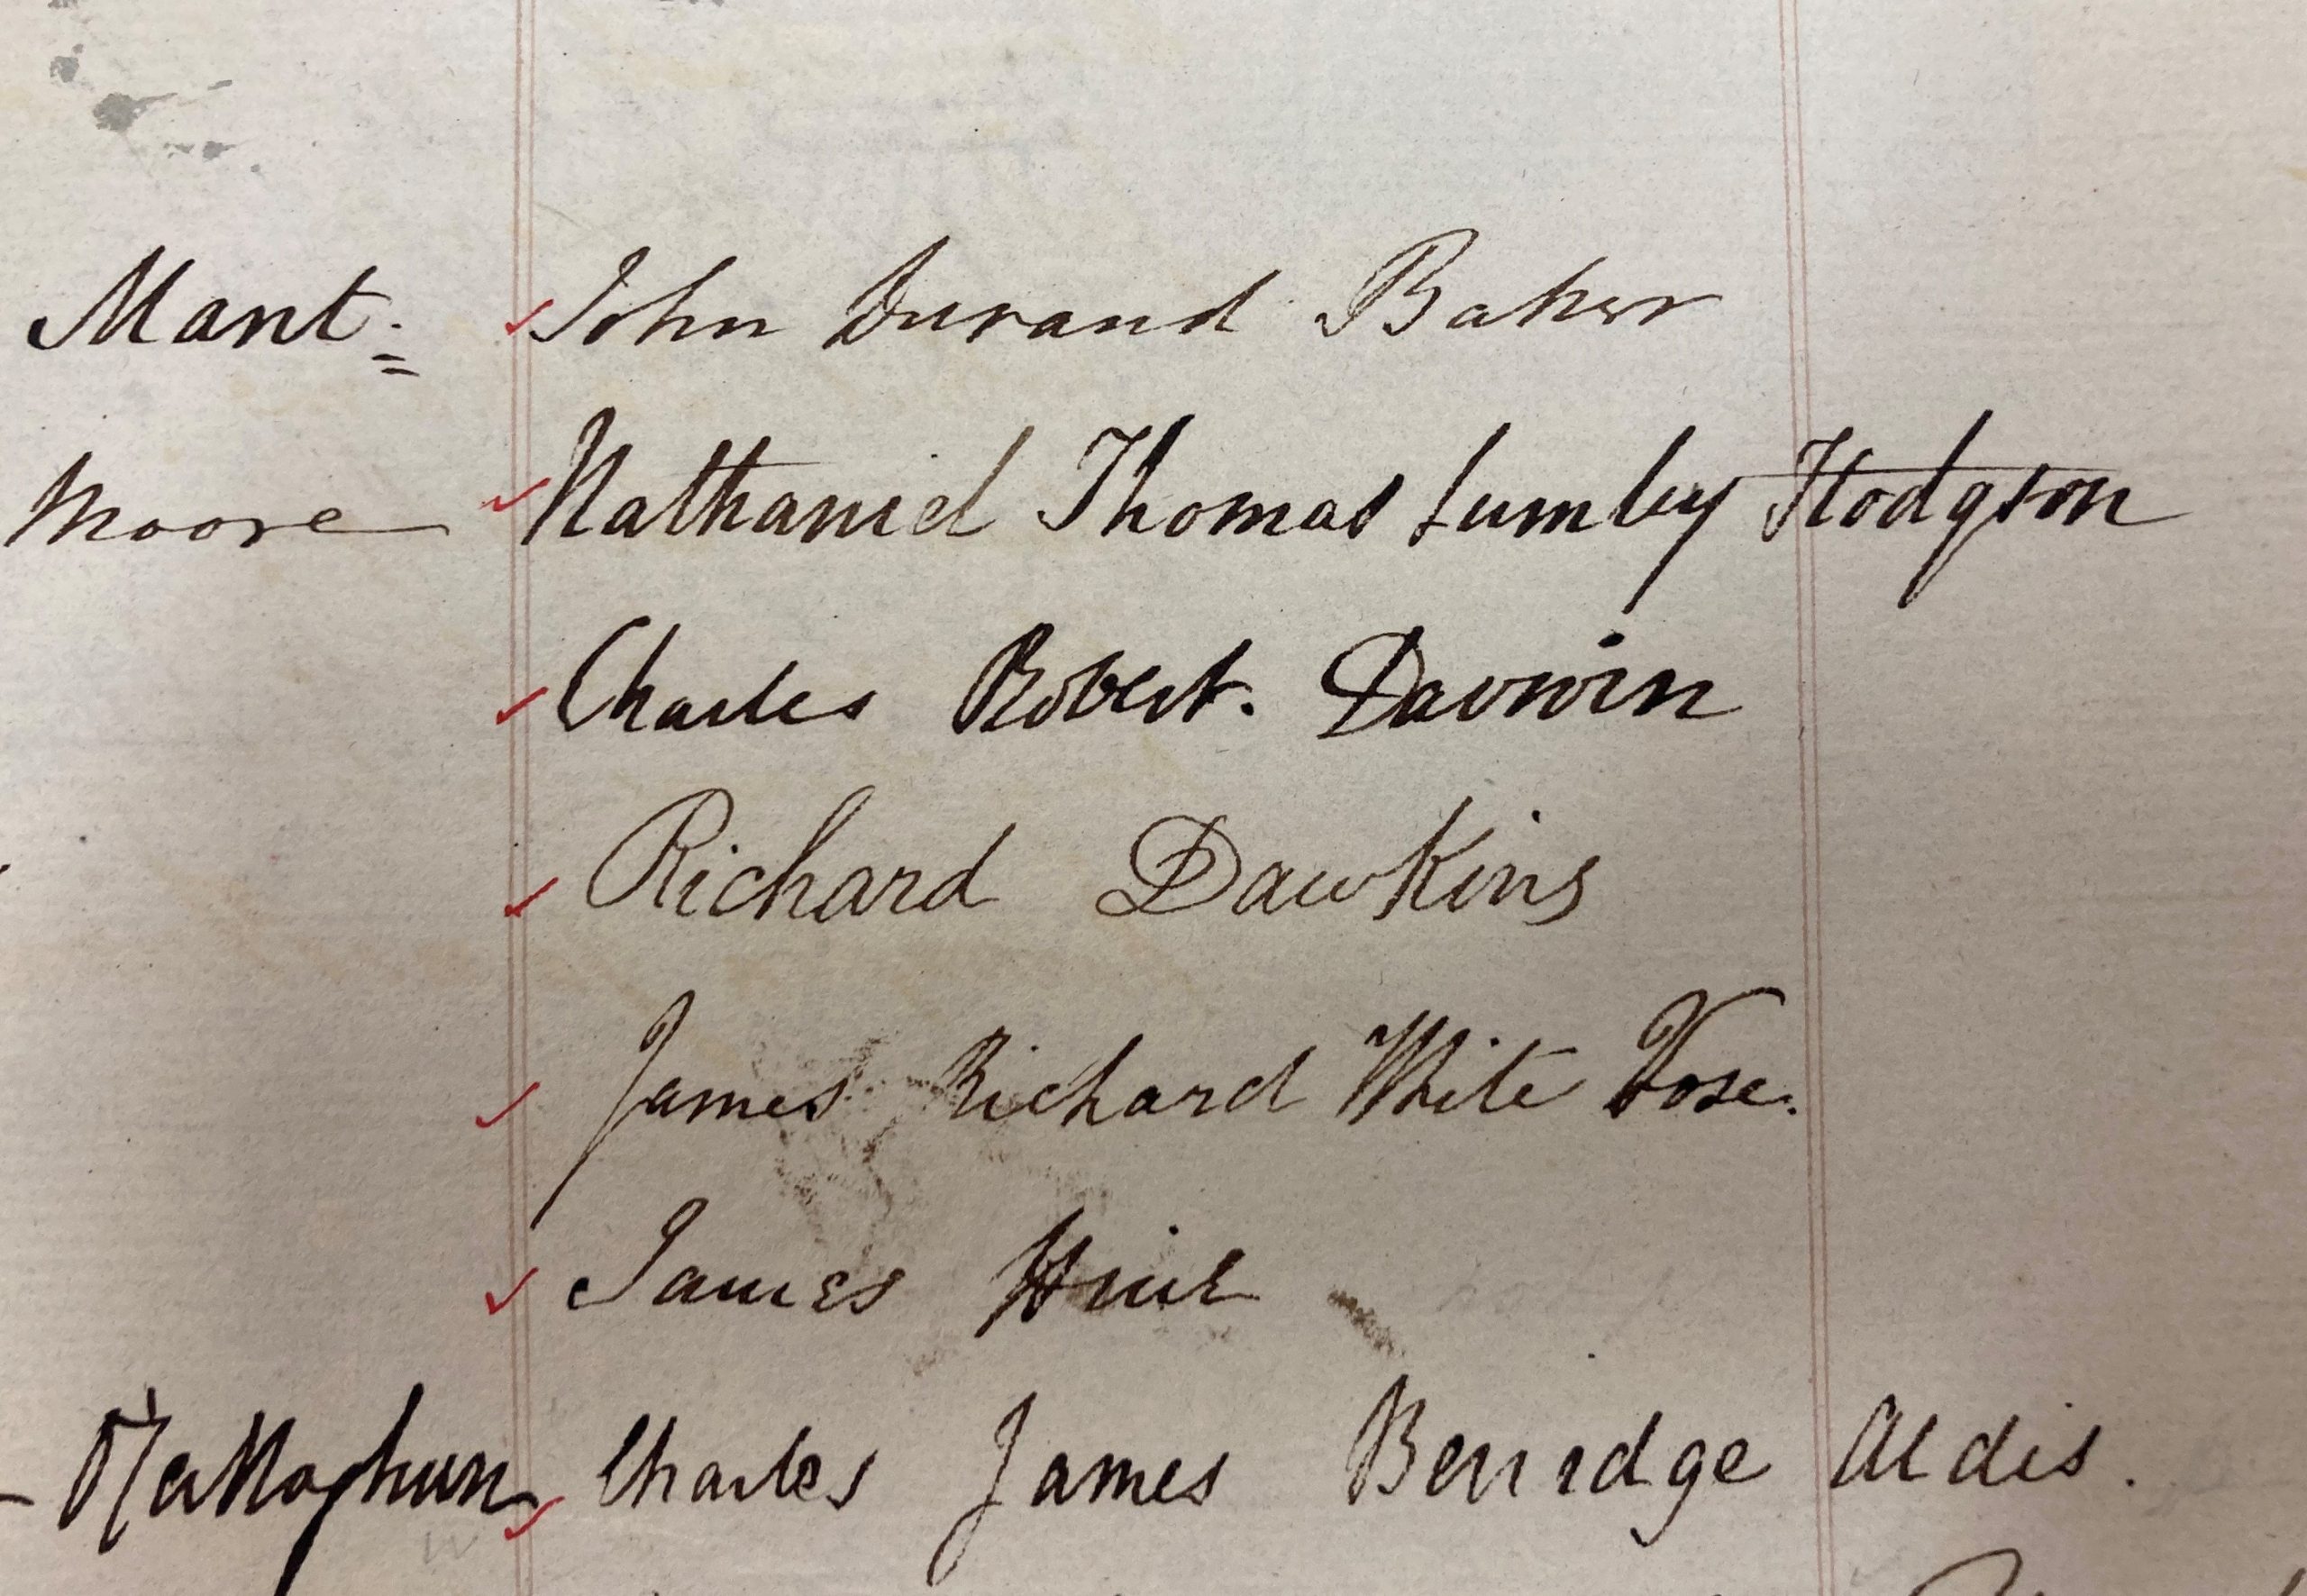 Mant. John Durand Baker
Moore Nathaniel Thomas Lumley Hodgson
Charles Robert. Darwin
Richard Dawkins
James Richard White Vose.
James
Charles James Berridge Aldis.